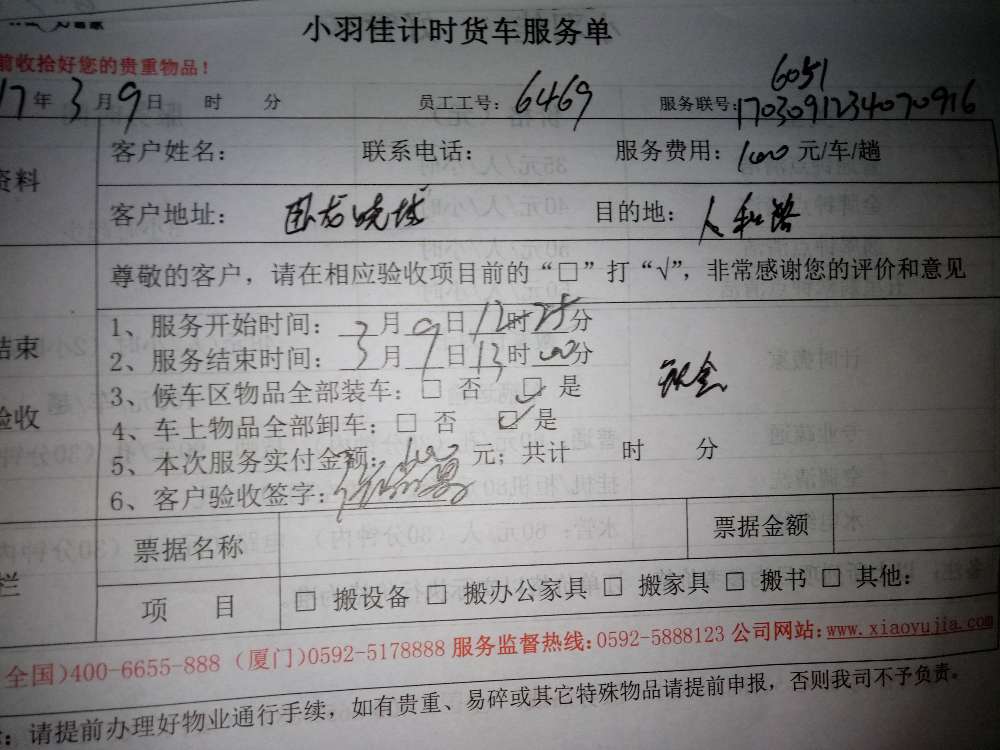 小羽佳计时货车服务单
前收拾好您的贵重物品！
6051
17年3月9日 时 分 员工工号：6469 服务联号：1703091234070916
资料 客户姓名： 联系电话： 服务费用：100元/车/趟
客户地址：卧龙晓城 目的地：人和路
尊敬的客户，请在相应验收项目前的“□”打“√”，非常感谢您的评价和意见
结束 1、服务开始时间：3月9日12时25分
2、服务结束时间：3月9日13时00分
验收 3、候车区物品全部装车：□ 否 ☑ 是 现金
4、车上物品全部卸车：□ 否 ☑ 是
5、本次服务实付金额：100元；共计 时 分
6、客户验收签字：
栏 票据名称 票据金额
项 目 □ 搬设备 □ 搬办公家具 □ 搬家具 □ 搬书 □ 其他：
全国)400-6655-888（厦门)0592-5178888 服务监督热线:0592-5888123 公司网站:www.xiaoyujia.com
：请提前办理好物业通行手续，如有贵重、易碎或其它特殊物品请提前申报，否则我司不予负责。